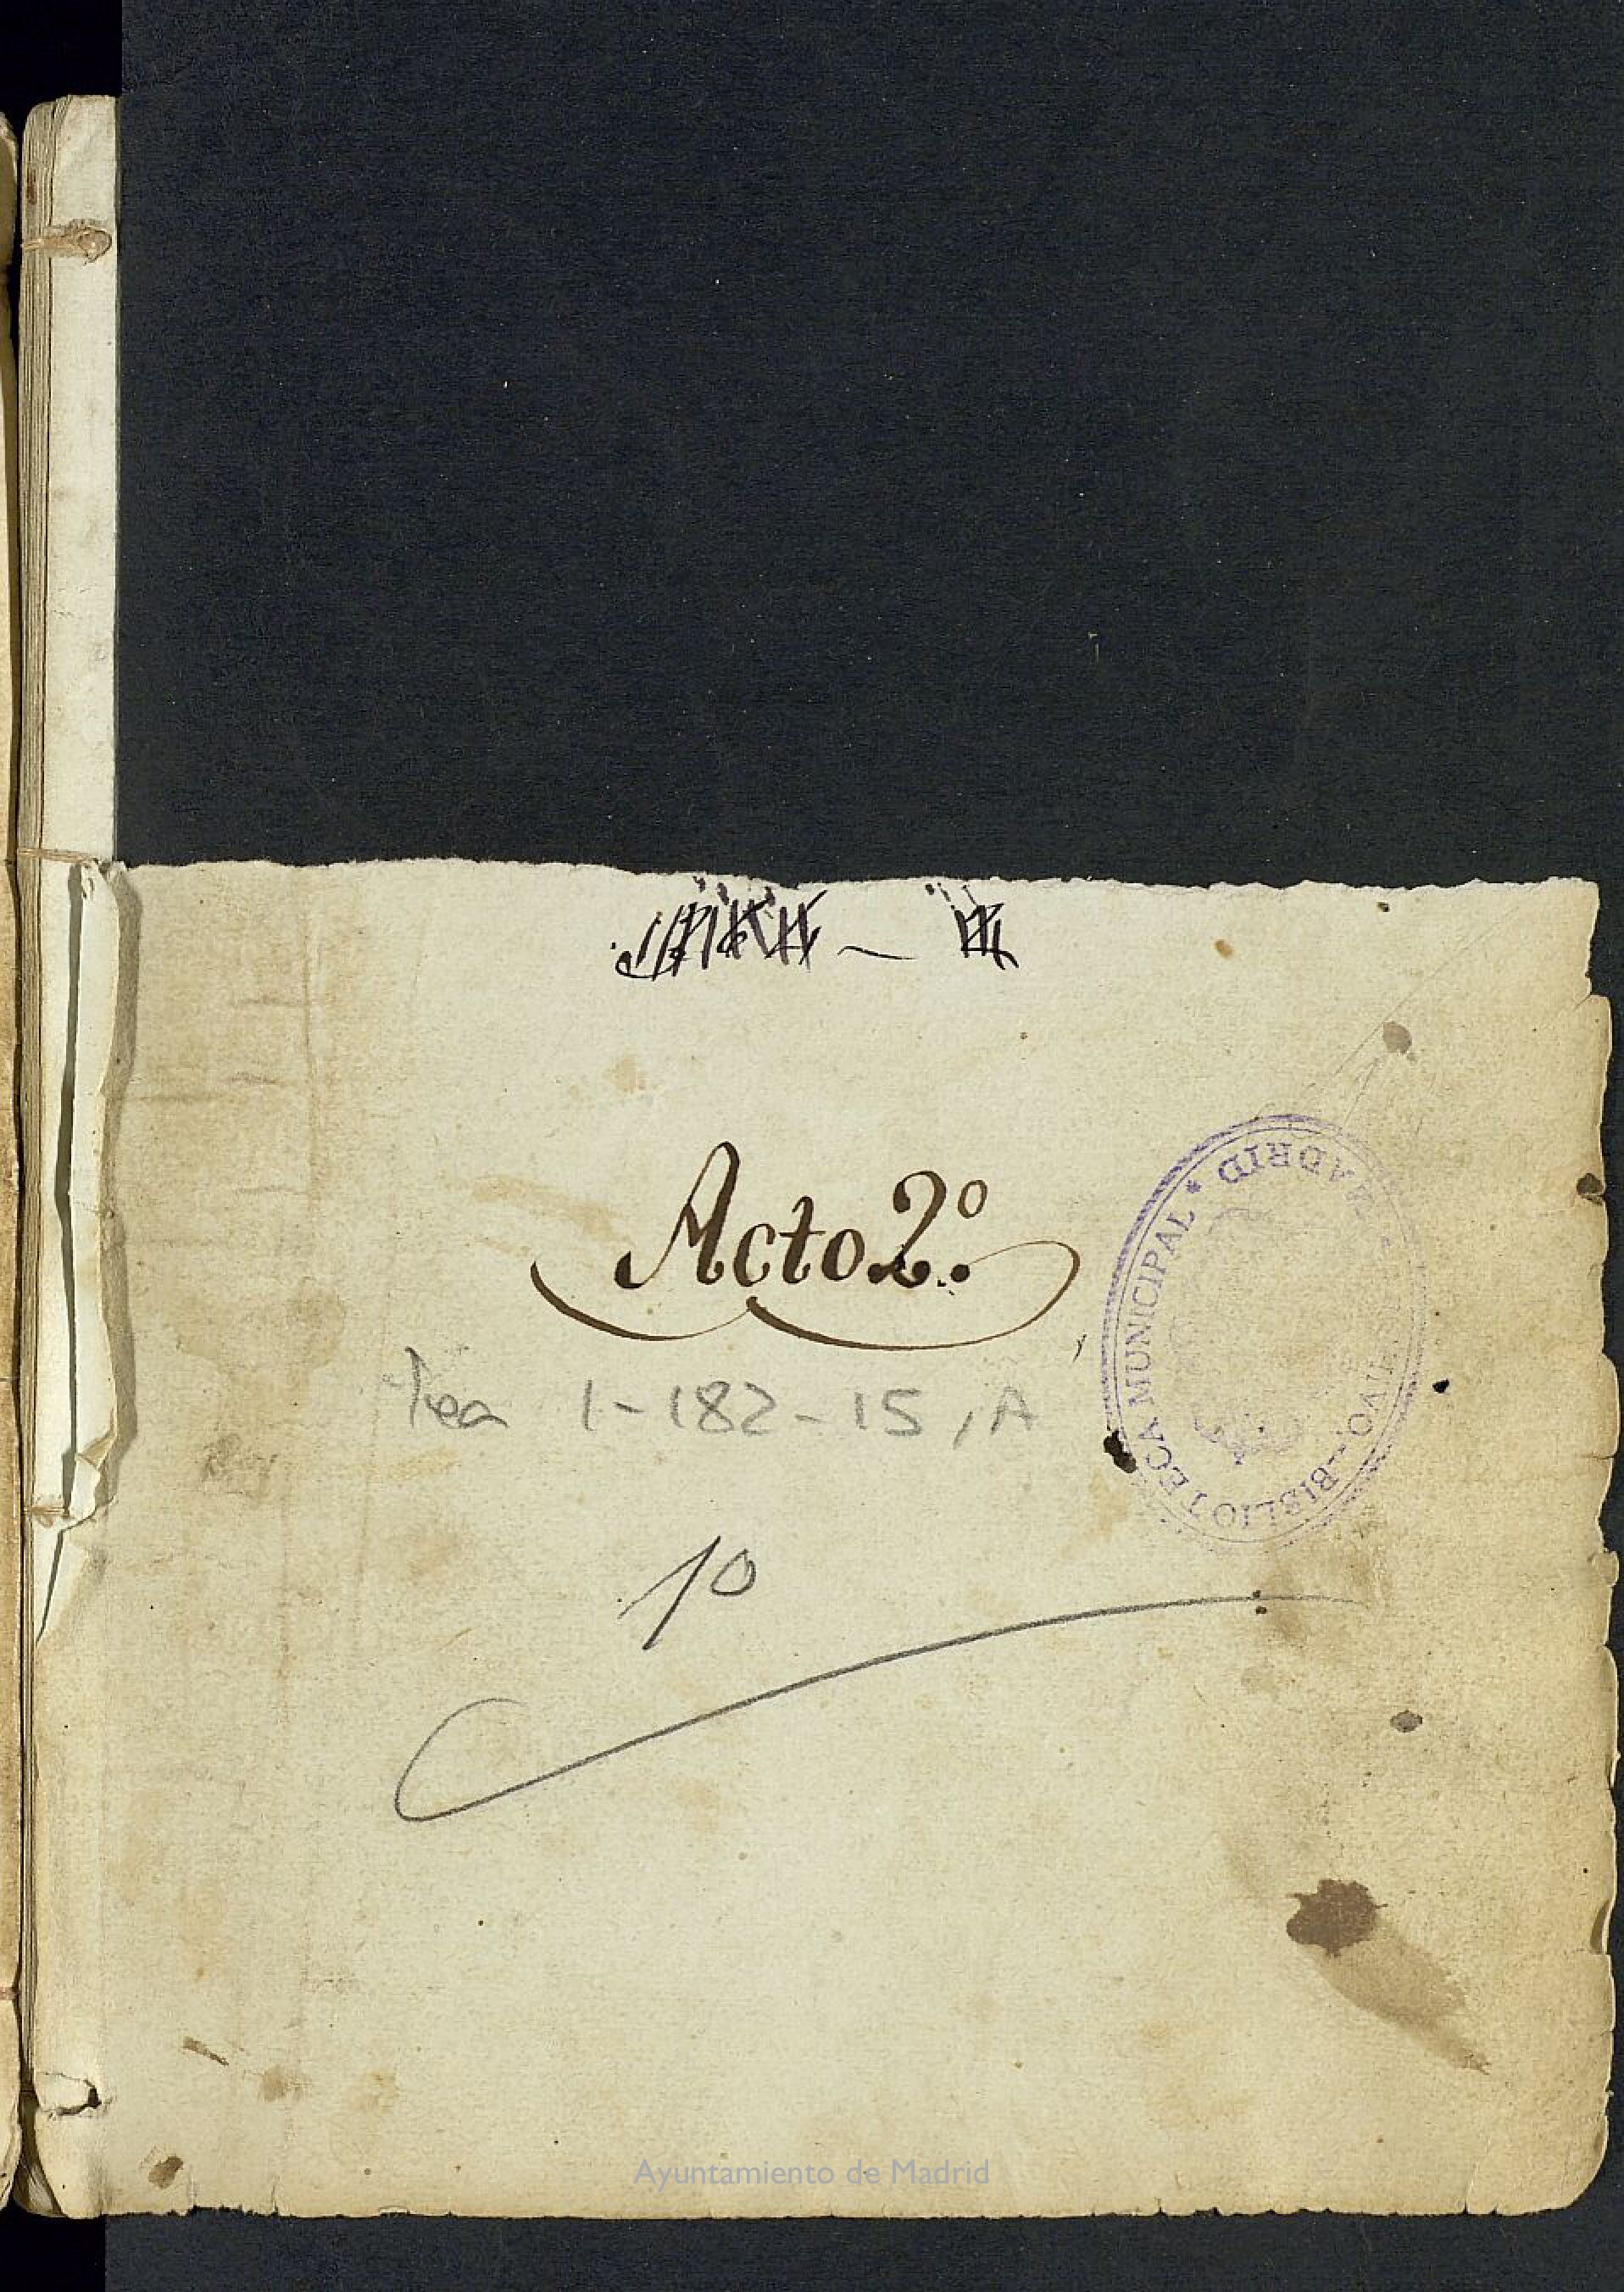 Acto 2º.
Tea 1-182-15, A
10
BIBLIOTECA MUNICIPAL * MADRID
Ayuntamiento de Madrid